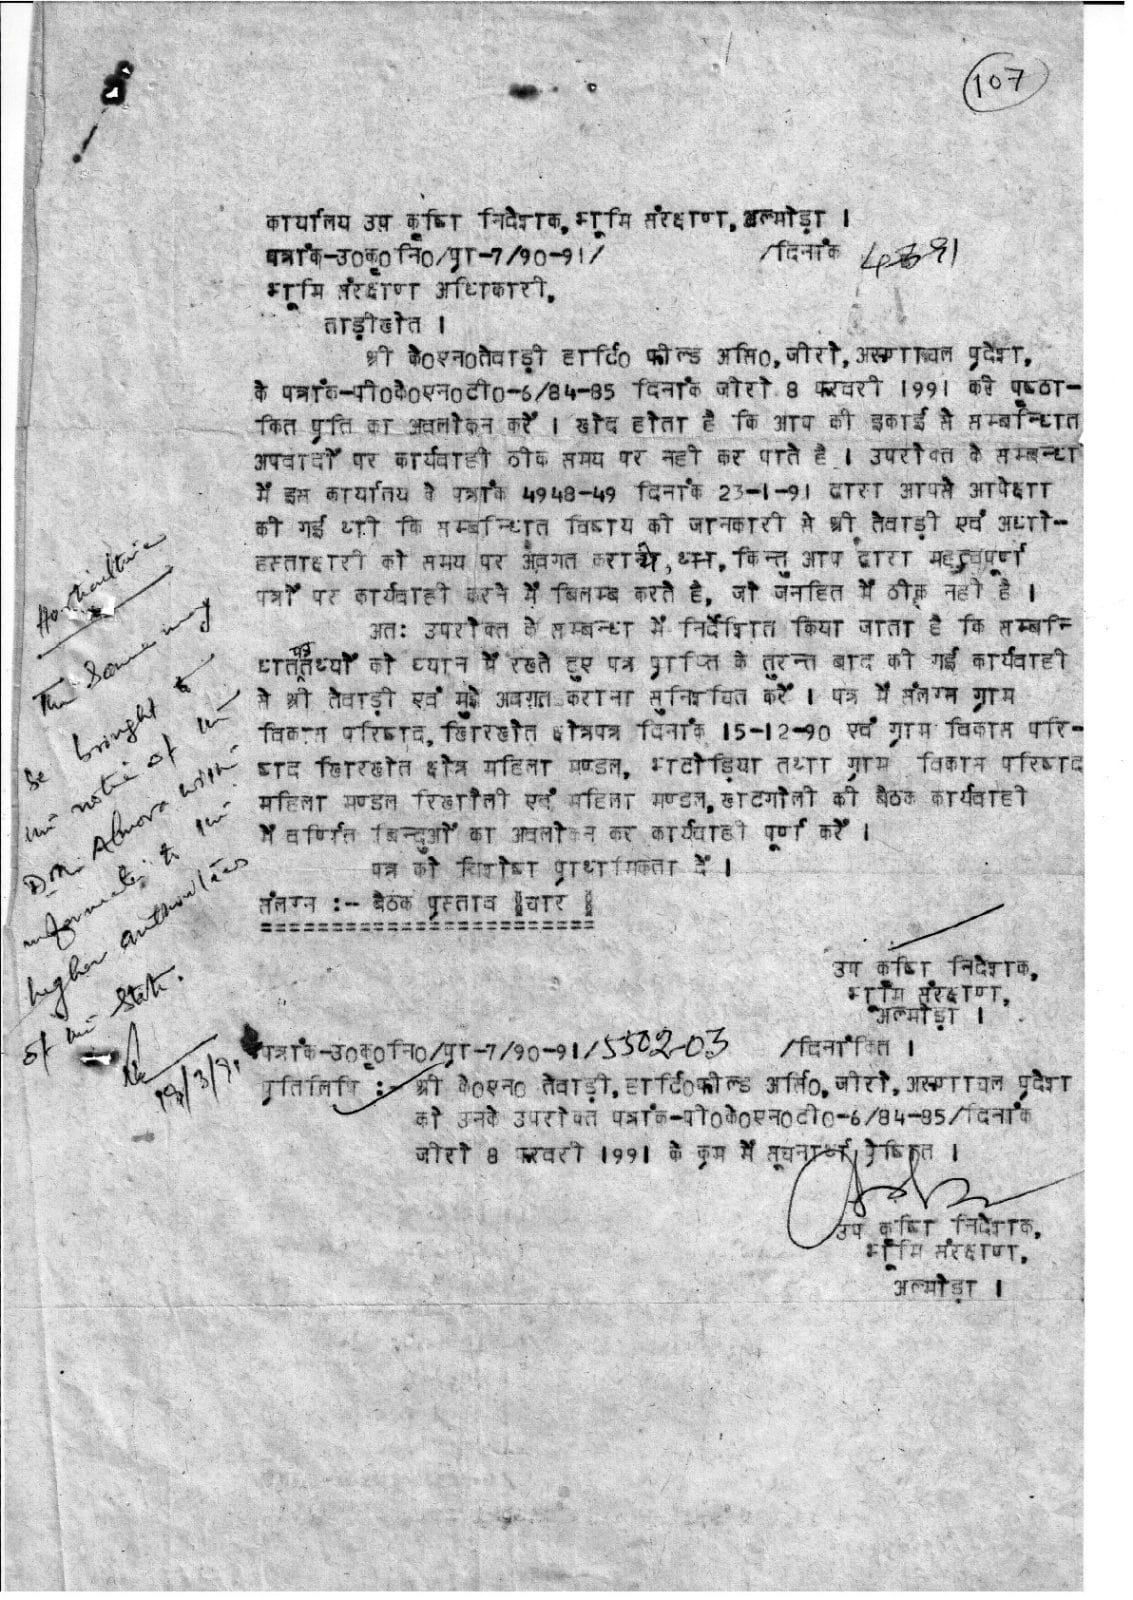 107
कार्यालय उप कृषि निदेशक, भूमि संरक्षण, अल्मोड़ा ।
पत्रांक-उ0कृ0नि0/प्रा-7/90-91/ /दिनांक
भूमि संरक्षण अधिकारी,
ताड़ीखेत ।
श्री के0एन0तेवाड़ी हार्टि0 फील्ड असि0, जीरो, अरूणाचल प्रदेश,
के पत्रांक-पी0के0एन0टी0-6/84-85 दिनांक जीरो 8 फरवरी 1991 की पृष्ठा-
कित प्रति का अवलोकन करें । खेद होता है कि आप की इकाई से सम्बन्धित
अपवादों पर कार्यवाही ठीक समय पर नही कर पाते है । उपरोक्त के सम्बन्ध
में इस कार्यालय के पत्रांक 4948-49 दिनांक 23-1-91 द्वारा आपसे आपेक्षा
की गई थी कि सम्बन्धित विषय की जानकारी से श्री तेवाड़ी एवं अधो-
हस्ताक्षरी को समय पर अवगत कराये, किन्तु आप द्वारा महत्वपूर्ण
पत्रों पर कार्यवाही करने में बिलम्ब करते है, जो जनहित में ठीक नही है ।
अतः उपरोक्त के सम्बन्ध में निर्देशित किया जाता है कि सम्बन्नि
धात पत्र तथ्यों को ध्यान में रखते हुए पत्र प्राप्ति के तुरन्त बाद की गई कार्यवाही
से श्री तेवाड़ी एवं मुझे अवगत कराना सुनिश्चित करें । पत्र में संलग्न ग्राम
विकास परिषद, खिरखेत क्षेत्रपत्र दिनांक 15-12-90 एवं ग्राम विकास परि-
षद खिरखेत क्षेत्र महिला मण्डल, भटोड़िया तथा ग्राम विकास परिषद
महिला मण्डल रिखोली एवं महिला मण्डल, खाटगोली की बैठक कार्यवाही
में वर्णित बिन्दुओं का अवलोकन कर कार्यवाही पूर्ण करें ।
पत्र को विशेष प्राथमिकता दें ।
संलग्न :- बैठक प्रस्ताव (चार)
उप कृषि निदेशक,
भूमि संरक्षण,
अल्मोड़ा ।
Horticulture
The Same may
be brought to
the notice of the
D.M. Almora with
information to the
higher authorities
of the State.
18/3/91
पत्रांक-उ0कृ0नि0/प्रा-7/90-91/5502-03 /दिनांकित ।
प्रतिलिपि :- श्री के0एन0 तेवाड़ी, हार्टि0फील्ड असि0, जीरो, अरूणाचल प्रदेश
को उनके उपरोक्त पत्रांक-पी0के0एन0टी0-6/84-85/दिनांक
जीरो 8 फरवरी 1991 के क्रम में सूचनार्थ प्रेषित ।
उप कृषि निदेशक,
भूमि संरक्षण,
अल्मोड़ा ।